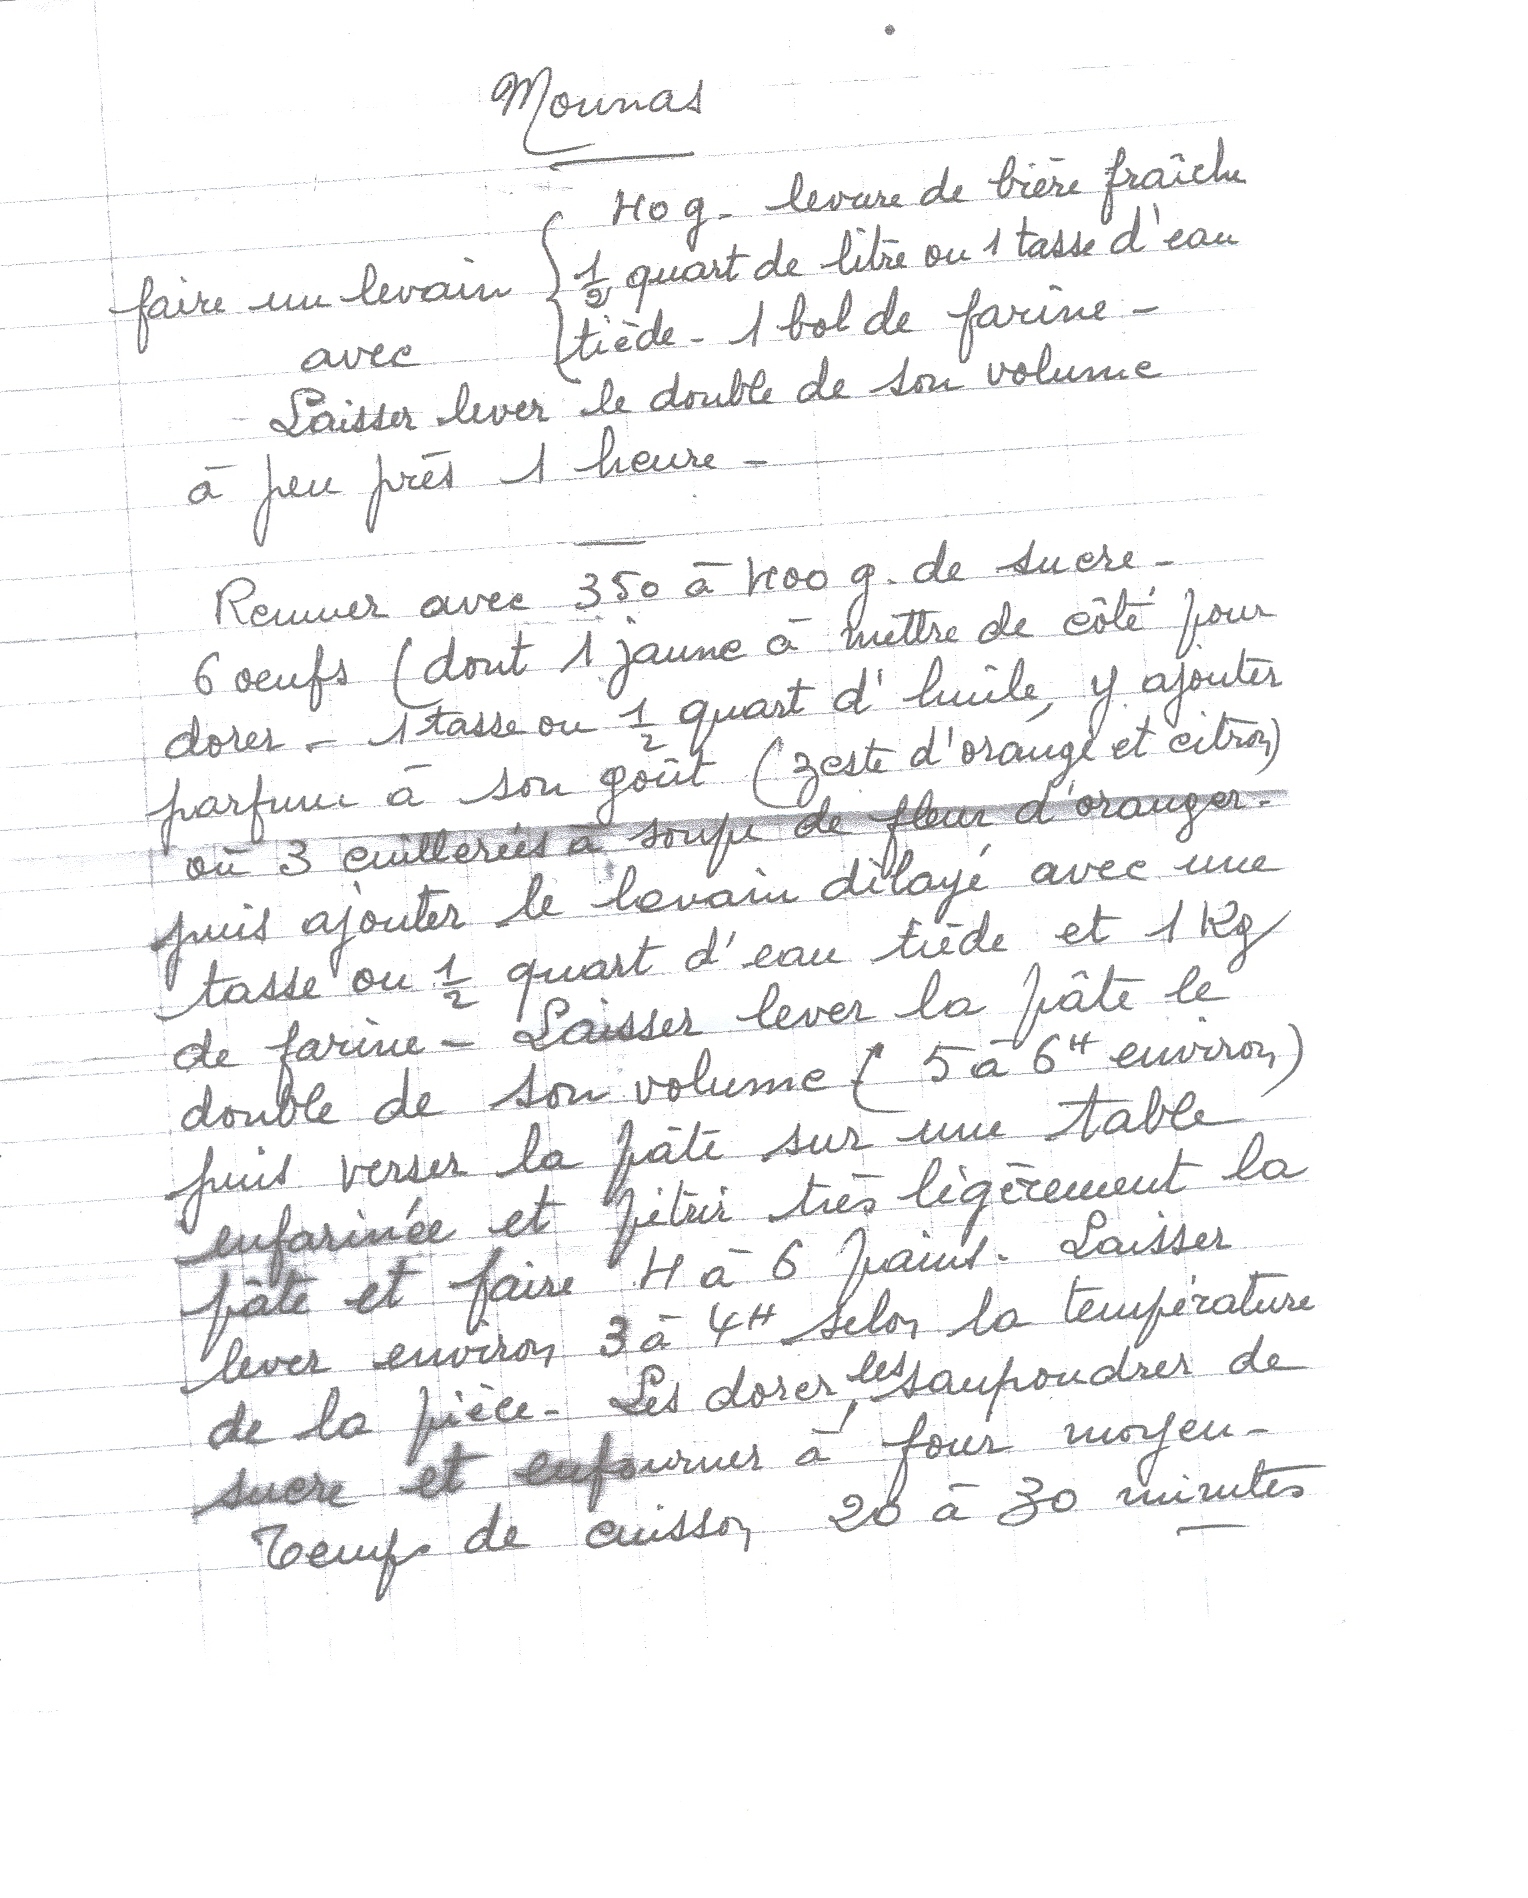 Mounas
40 g. levure de bière fraîche
faire un levain { 1/2 quart de litre ou 1 tasse d'eau
avec tiède - 1 bol de farine -
Laisser lever le double de son volume
à peu près 1 heure -
Remuer avec 350 à 400 g. de sucre -
6 oeufs (dont 1 jaune à mettre de côté pour
dorer - 1 tasse ou 1/2 quart d'huile, y ajouter
parfum à son goût (zeste d'orange et citron)
ou 3 cuillerées à soupe de fleur d'oranger.
puis ajouter le levain délayé avec une
tasse ou 1/2 quart d'eau tiède et 1 Kg
de farine - Laisser lever la pâte le
double de son volume ( 5 à 6H environ)
puis verser la pâte sur une table
enfarinée et pétrir très légèrement la
pâte et faire 4 à 6 pains. Laisser
lever environ 3 à 4H selon la température
de la pièce - Les dorer, les saupoudrer de
sucre et enfourner à four moyen -
Temps de cuisson 20 à 30 minutes